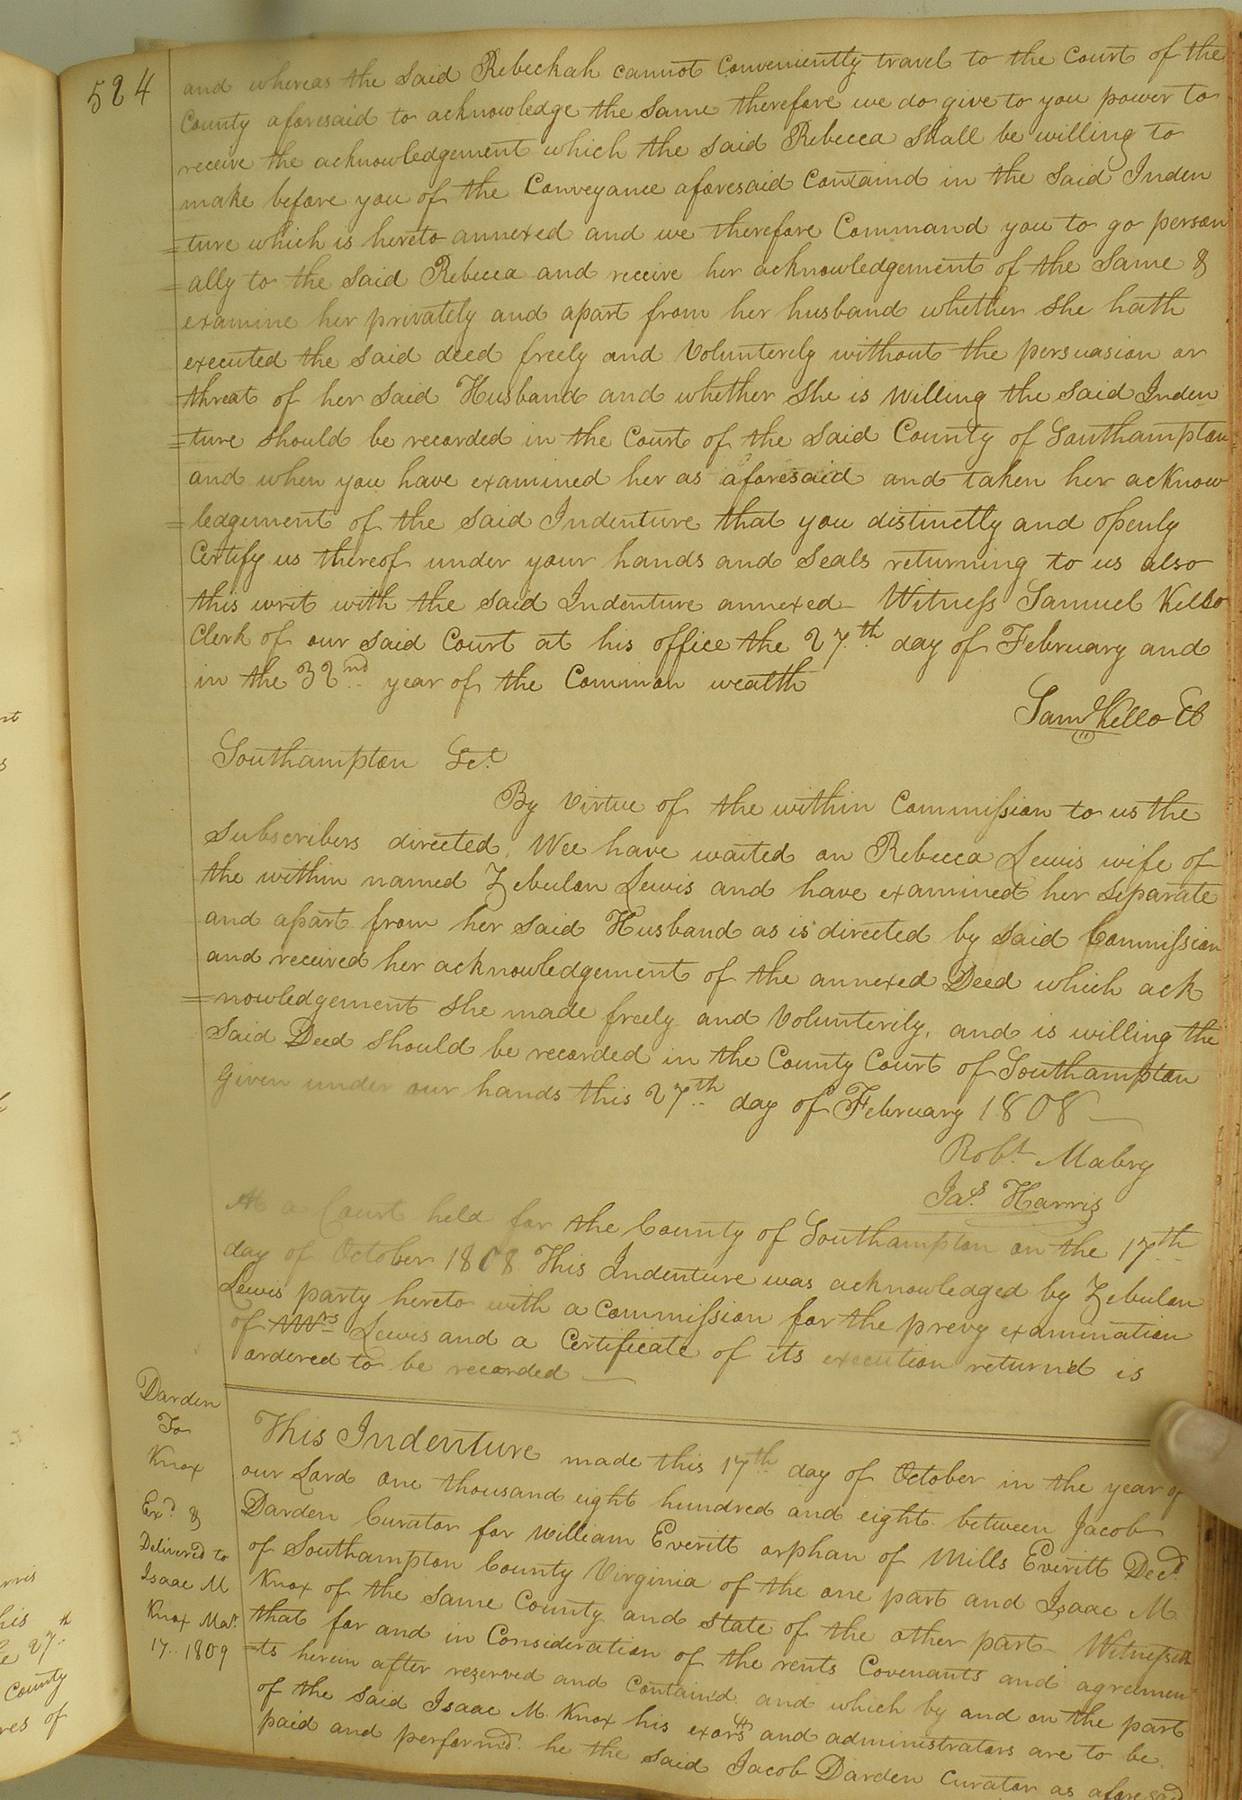 524
and whereas the said Rebeckah cannot Conveniently travel to the Court of the
County aforesaid to acknowledge the Same therefore we do give to you power to
receive the acknowledgement which the said Rebecca Shall be willing to
make before you of the Conveyance aforesaid Containd in the Said Inden
=ture which is hereto annexed and we therefore Command you to go person
=ally to the Said Rebecca and receive her acknowledgement of the Same &
examine her privately and apart from her husband whether She hath
executed the Said deed freely and Volunterely without the persuasion or
threat of her Said Husband and whether She is willing the Said Inden
=ture Should be recorded in the Court of the Said County of Southampton
and when you have examined her as aforesaid and taken her acknow
=ledgement of the Said Indenture that you distinctly and openly
Certify us thereof under your hands and Seals returning to us also
this writ with the Said Indenture annexed – Witness Samuel Kello
Clerk of our Said Court at his office the 27th day of February and
in the 32nd year of the Common wealth
Saml Kello
Southampton Sct
By Virtue of the within Commission to us the
Subscribers directed, Wee have waited on Rebecca Lewis wife of
the within named Zebulon Lewis and have examined her Separate
and apart from her Said Husband as is directed by Said Commission
and received her acknowledgement of the annexed Deed which ack
=nowledgement She made freely and Volunterily, and is willing the
Said Deed Should be recorded in the County Court of Southampton
Given under our hands this 27th day of February 1808
Robt Mabry
Jas Harris
At a Court held for the County of Southampton on the 17th
day of October 1808 This Indenture was acknowledged by Zebulon
Lewis party hereto with a Commission for the prevy examination
of Mrs Lewis and a Certificate of its execution returnd is
ordered to be recorded
Darden
To
Knox
Exd &
Delivered to
Isaac M
Knox Mar.
17.. 1809
This Indenture made this 17th day of October in the year of
our Lord one thousand eight hundred and eight between Jacob
Darden Curator for William Everitt orphan of Mills Everitt Decd
of Southampton County Virginia of the one part and Isaac M
Knox of the Same County and State of the other part Witnesseth
that for and in Consideration of the rents Covenants and agreemen
=ts herein after reserved and Contained and which by and on the part
of the Said Isaac M. Knox his exors and administrators are to be
paid and performd. he the Said Jacob Darden Curator as aforesaid